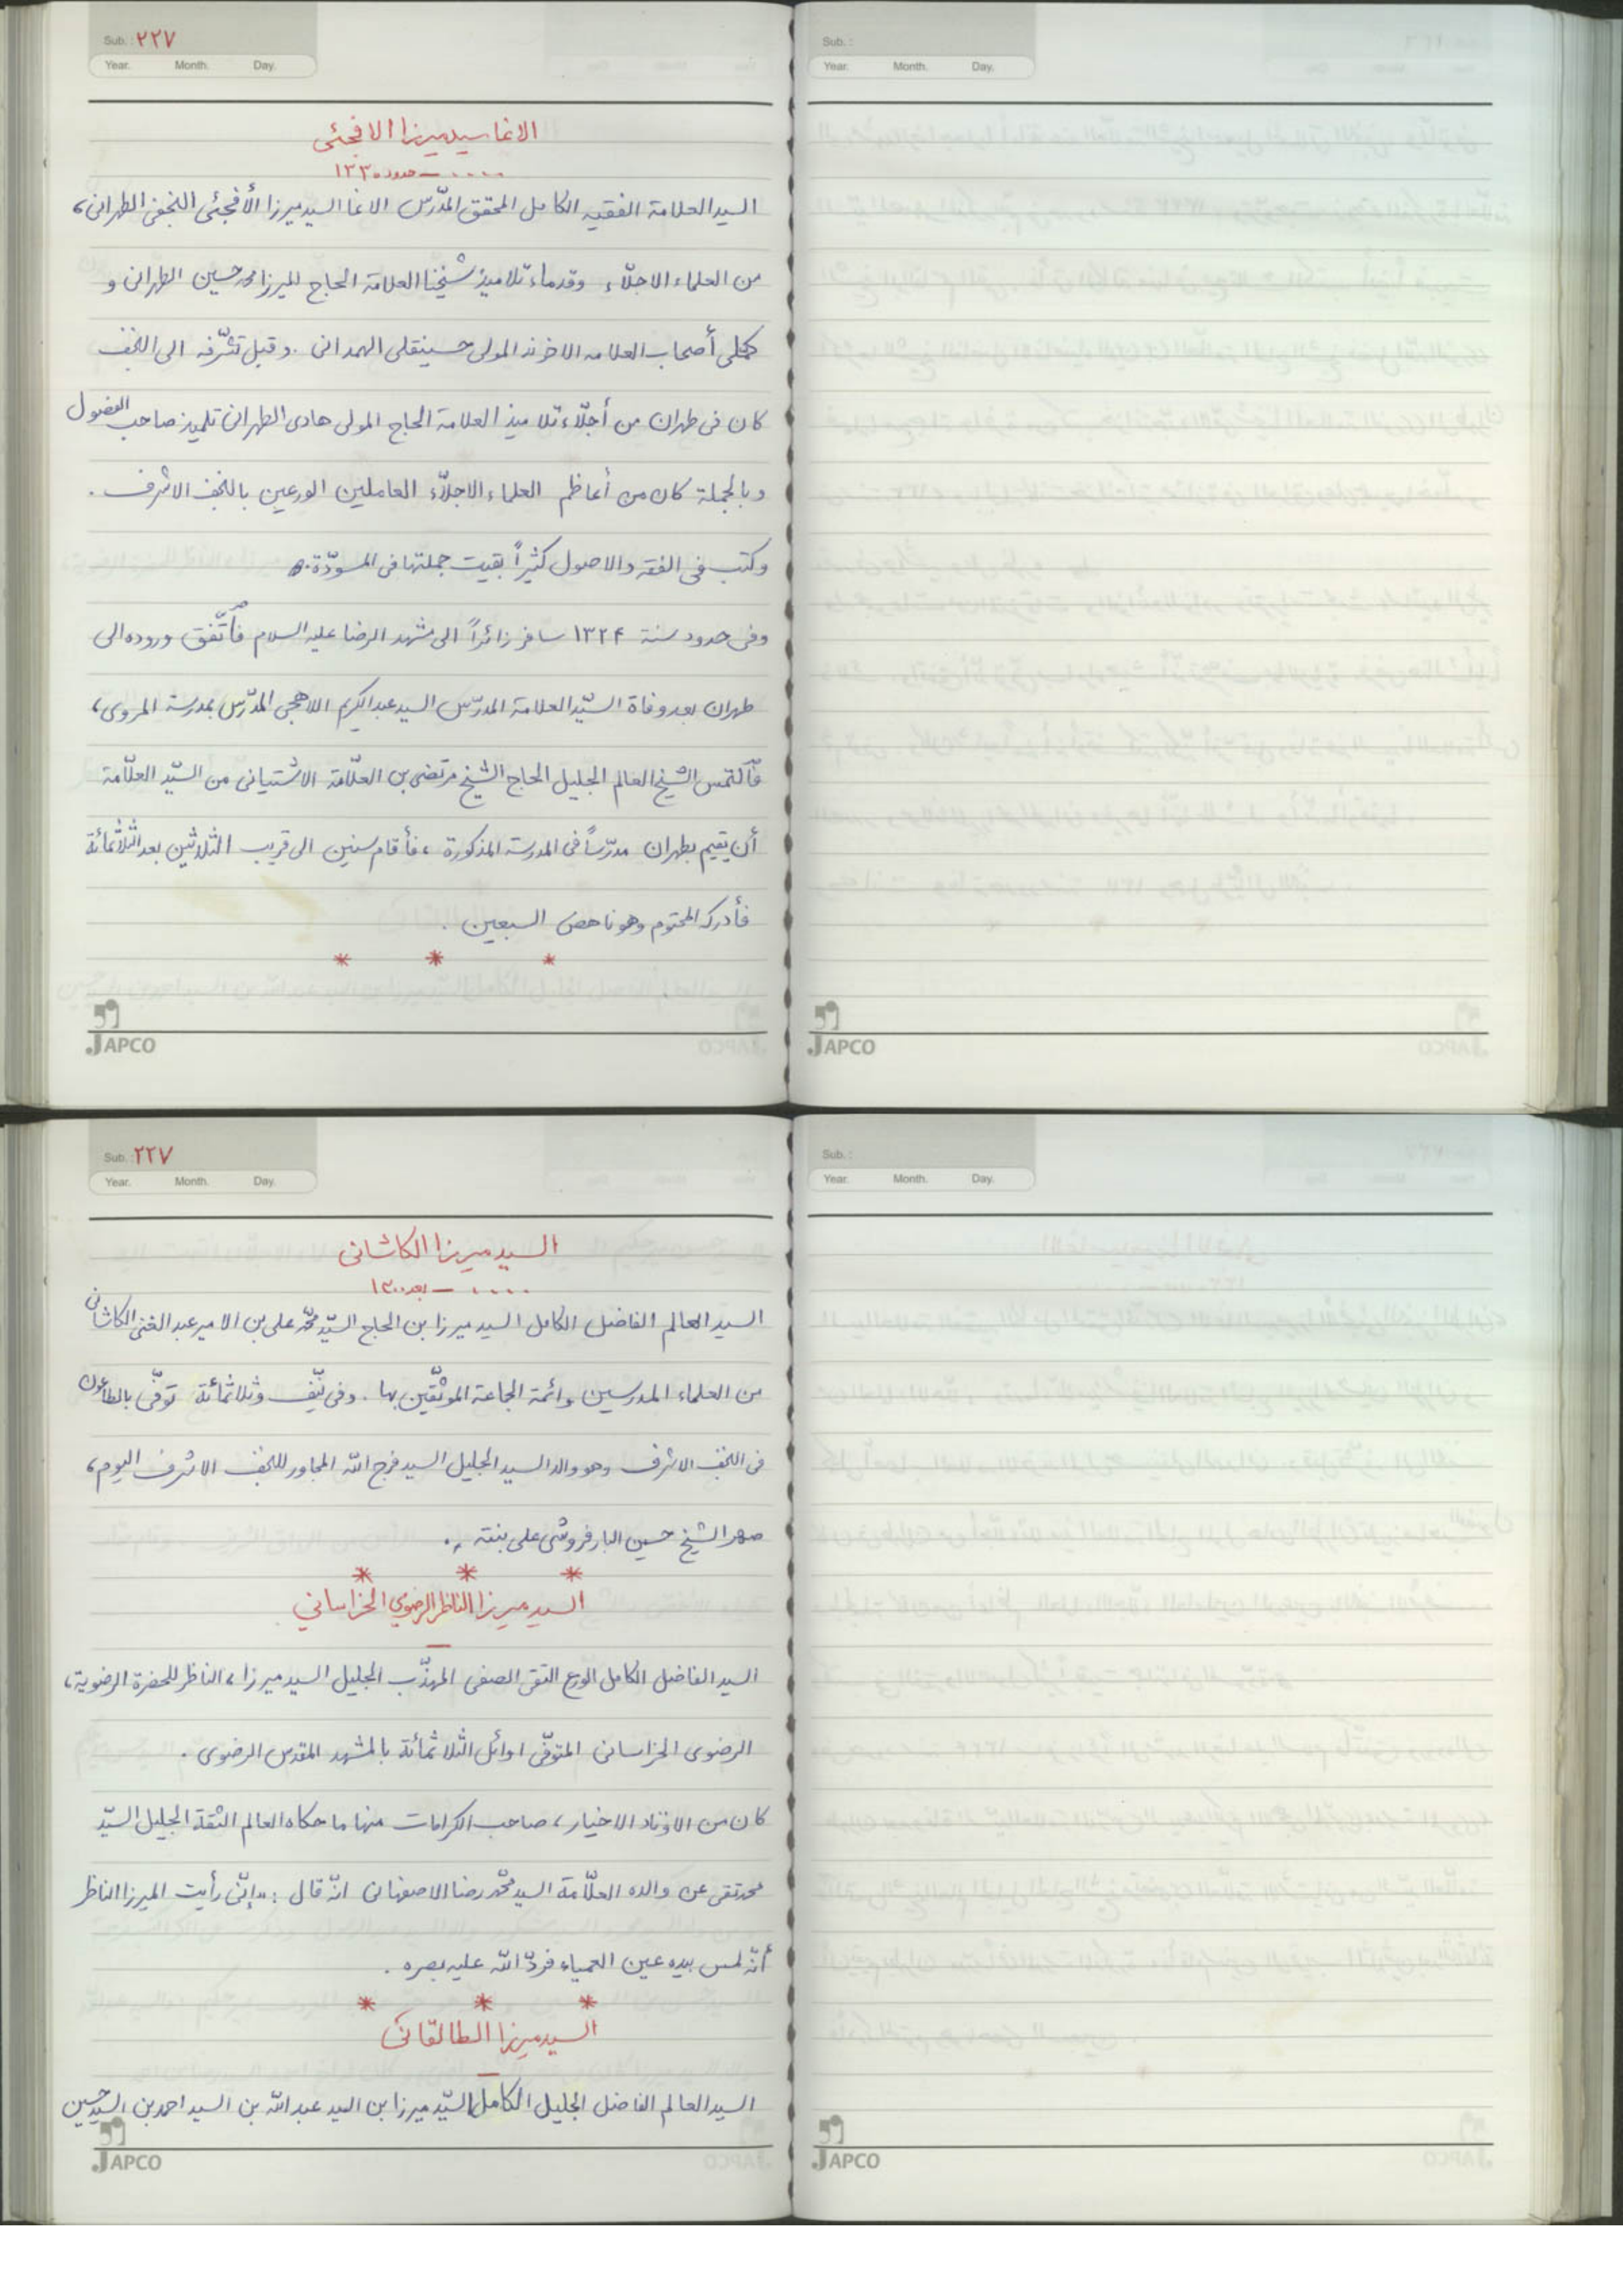 Sub.: ۲۲۷
Year. Month. Day.
الاغا سيد ميرزا الافجئى
.... ـ حدود ۱۳۳۰
السيد العلامة الفقيه الكامل المحقق المدّرس الاغا السيد ميرزا الأفجئى النجفى الطهرانى،
من العلماء الاجلّاء وقدماء تلاميذ شيخنا العلامة الحاج الميرزا محمد حسين الطهرانى و
كملى أصحاب العلامه الاخوند المولى حسينقلى الهمدانى . وقبل تشّرفه الى النجف
كان فى طهران من أجلّاء تلاميذ العلامة الحاج المولى هادى الطهرانى تلميذ صاحب الفصول
وبالجملة كان من أعاظم العلماء الاجلاّء العاملين الورعين بالنجف الاشرف .
وكتب فى الفقه والاصول كثيراً بقيت جملتها فى المسوّدة .
وفى حدود سنة ۱۳۲۴ سافر زائراً الى مشهد الرضا عليه السلام فأتّفق وروده الى
طهران بعد وفاة السّيد العلامة المدرّس السيد عبدالكريم اللاهجى المدّرس بمدرسة المروى،
فألتمس الشيخ العالم الجليل الحاج الشيخ مرتضى بن العلّامة الاشتيانى من السّيد العلّامة
أن يقيم بطهران مدرّساً فى المدرسة المذكورة ، فأقام سنين الى قريب الثلاثين بعد الثلاثمائة
فأدركه المحتوم وهو ناهض السبعين .
* * *
JAPCO
Sub.:
Year. Month. Day.
JAPCO
Sub.: ۲۲۷
Year. Month. Day.
السيد ميرزا الكاشانى
.... ـ بعد ۱۳۰۰
السيد العالم الفاضل الكامل السيد ميرزا بن الحاج السيّد محمّد على بن الامير عبد الغنى الكاشانى
من العلماء المدرسين وائمة الجماعة الموثّقين بها . وفى نيّف وثلاثمائة توفّى بالطاعون
فى النجف الاشرف وهو والد السيد الجليل السيد فرج الله المجاور للنجف الاشرف اليوم،
صهر الشيخ حسين البارفروشى على بنته .
* * *
السيد ميرزا الناظر الرضوي الخراساني
ـ
السيد الفاضل الكامل الورع التقى الصفى المهذّب الجليل السيد ميرزا ، الناظر للحضرة الرضوية،
الرضوى الخراسانى المتوفّى اوائل الثلاثمائة بالمشهد المقدس الرضوى .
كان من الاوتاد الاخيار ، صاحب الكرامات منها ما حكاه العالم الثقة الجليل السيّد
محمد تقى عن والده العلّامة السيد محمّد رضا الاصفهانى انّه قال : «إنّى رأيت الميرزا الناظر
أنّه لمس بيده عين العمياء فردّ الله عليه بصره .
* * *
السيد ميرزا الطالقانى
ـ
السيد العالم الفاضل الجليل الكامل السيّد ميرزا بن السيد عبدالله بن السيد احمد بن السيد حسين
JAPCO
Sub.:
Year. Month. Day.
JAPCO